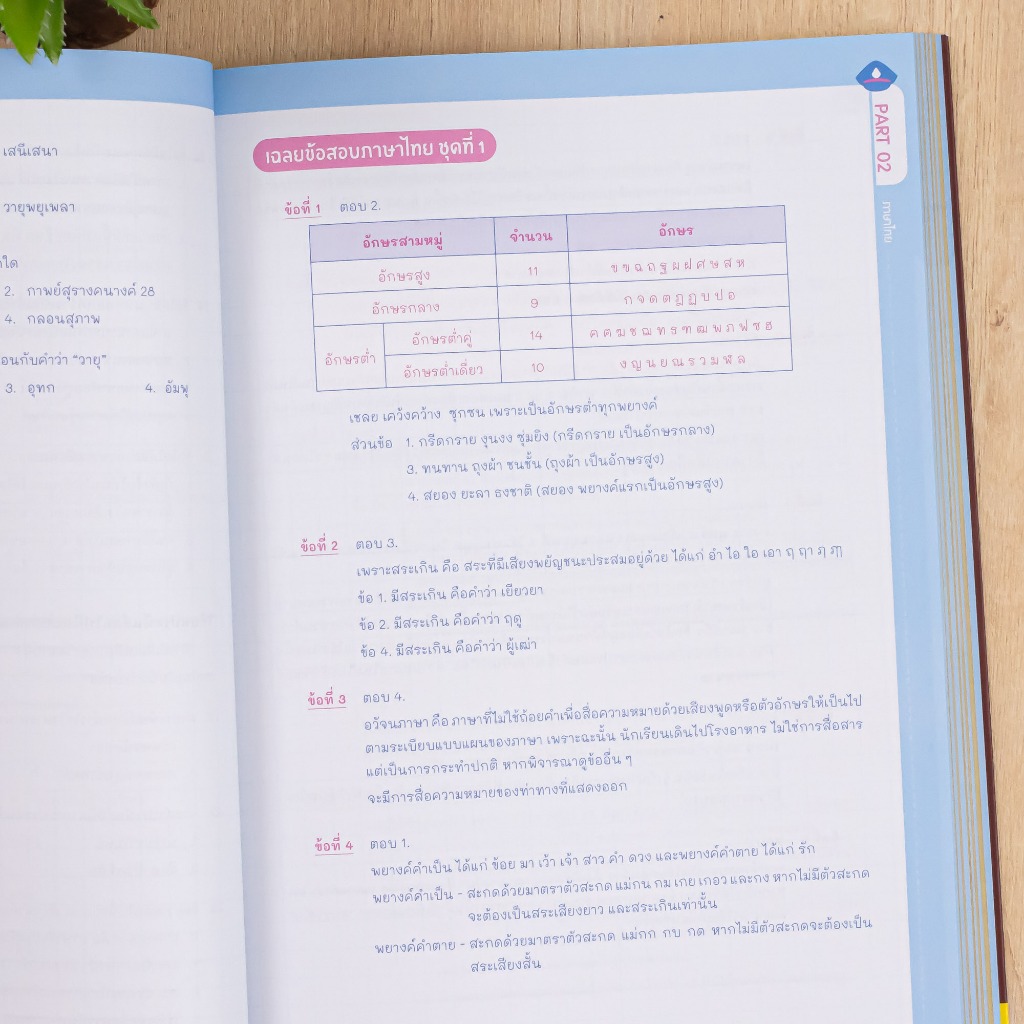 เสนีเสนา
วายุพยุเพลา
2. กาพย์สุรางคนางค์ 28
4. กลอนสุภาพ
อนกับคำว่า “วายุ”
3. อุทก 4. อัมพุ
PART 02
ภาษาไทย
เฉลยข้อสอบภาษาไทย ชุดที่ 1
ข้อที่ 1 ตอบ 2.
อักษรสามหมู่ จำนวน อักษร
อักษรสูง 11 ข ฃ ฉ ถ ฐ ผ ฝ ศ ษ ส ห
อักษรกลาง 9 ก จ ด ต ฎ ฏ บ ป อ
อักษรต่ำ อักษรต่ำคู่ 14 ค ฅ ฆ ช ฌ ท ธ ฑ ฒ พ ภ ฟ ซ ฮ
อักษรต่ำเดี่ยว 10 ง ญ น ย ณ ร ว ม ฬ ล
เชลย เคว้งคว้าง ซุกซน เพราะเป็นอักษรต่ำทุกพยางค์
ส่วนข้อ 1. กรีดกราย งุนงง ซุ่มยิง (กรีดกราย เป็นอักษรกลาง)
3. ทนทาน ถุงผ้า ชนชั้น (ถุงผ้า เป็นอักษรสูง)
4. สยอง ยะลา ธงชาติ (สยอง พยางค์แรกเป็นอักษรสูง)
ข้อที่ 2 ตอบ 3.
เพราะสระเกิน คือ สระที่มีเสียงพยัญชนะประสมอยู่ด้วย ได้แก่ อำ ไอ ใอ เอา ฤ ฤๅ ฦ ฦๅ
ข้อ 1. มีสระเกิน คือคำว่า เยียวยา
ข้อ 2. มีสระเกิน คือคำว่า ฤดู
ข้อ 4. มีสระเกิน คือคำว่า ผู้เฒ่า
ข้อที่ 3 ตอบ 4.
อวัจนภาษา คือ ภาษาที่ไม่ใช้ถ้อยคำเพื่อสื่อความหมายด้วยเสียงพูดหรือตัวอักษรให้เป็นไป
ตามระเบียบแบบแผนของภาษา เพราะฉะนั้น นักเรียนเดินไปโรงอาหาร ไม่ใช่การสื่อสาร
แต่เป็นการกระทำปกติ หากพิจารณาดูข้ออื่น ๆ
จะมีการสื่อความหมายของท่าทางที่แสดงออก
ข้อที่ 4 ตอบ 1.
พยางค์คำเป็น ได้แก่ ข้อย มา เว้า เจ้า สาว คำ ดวง และพยางค์คำตาย ได้แก่ รัก
พยางค์คำเป็น - สะกดด้วยมาตราตัวสะกด แม่กน กม เกย เกอว และกง หากไม่มีตัวสะกด
จะต้องเป็นสระเสียงยาว และสระเกินเท่านั้น
พยางค์คำตาย - สะกดด้วยมาตราตัวสะกด แม่กก กบ กด หากไม่มีตัวสะกดจะต้องเป็น
สระเสียงสั้น